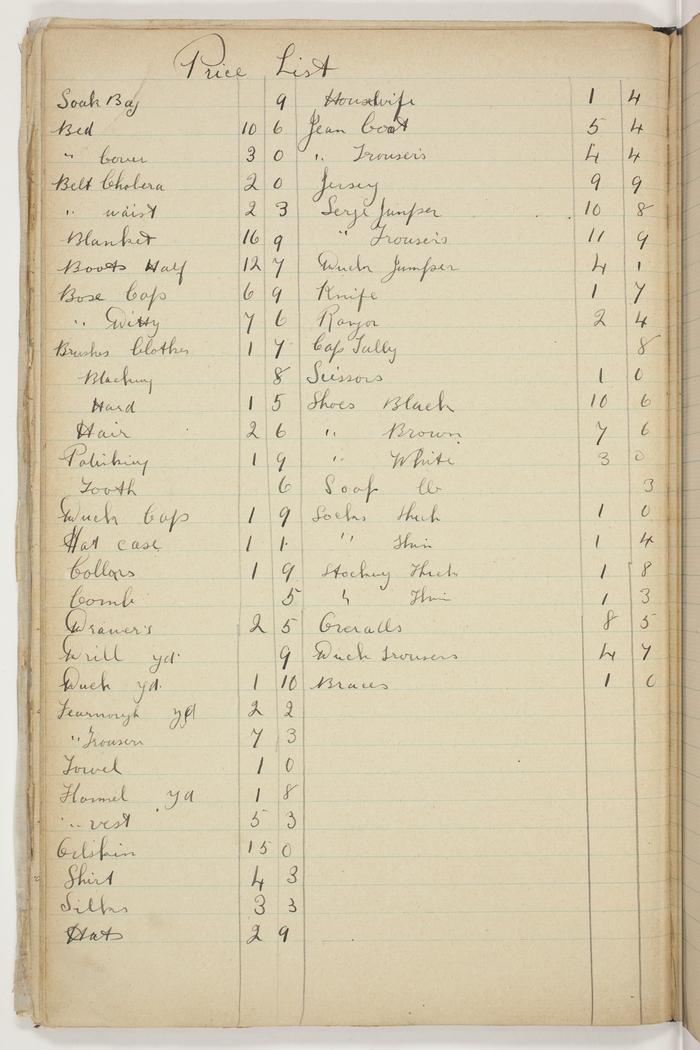 Price List
Soak Bag 9
Bed 10 6
" Cover 3 0
Belt Cholera 2 0
" waist 2 3
Blanket 16 9
Boots Half 12 7
Box Cap 6 9
" Ditty 7 6
Brushes Clothes 1 7
Blacking 8
Hard 1 5
Hair 2 6
Polishing 1 9
Tooth 6
Duck Cap 1 9
Hat case 1 1
Collars 1 9
Comb 5
Drawer's 2 5
Drill yd. 9
Duck yd. 1 10
Fearnough yd 2 2
" Trousers 7 3
Towel 1 0
Flannel yd 1 8
" vest 5 3
Oilskin 15 0
Shirt 4 3
Silks 3 3
Hats 2 9
Housewife 1 4
Jean Coat 5 4
" Trousers 4 4
Jersey 9 9
Serge Jumper 10 8
" Trousers 11 9
Duck Jumper 4 1
Knife 1 7
Razor 2 4
Cap Tally 8
Scissors 1 0
Shoes Black 10 6
" Brown 7 6
" White 3 0
Soap lb 3
Socks Thick 1 0
" Thin 1 4
Stocking Thick 1 8
" Thin 1 3
Overalls 8 5
Duck Trousers 4 7
Braces 1 0